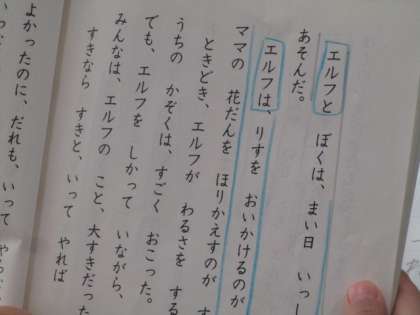 エルフと ぼくは、まい日 いっし
あそんだ。
エルフは、りすを おいかけるのが
ママの 花だんを ほりかえすのが す
ときどき、エルフが わるさを する
うちの かぞくは、すごく おこった。
でも、エルフを しかって いながら、
みんなは、エルフの こと、大すきだった
すきなら すきと、いって やれば
よかったのに、だれも、いって やら